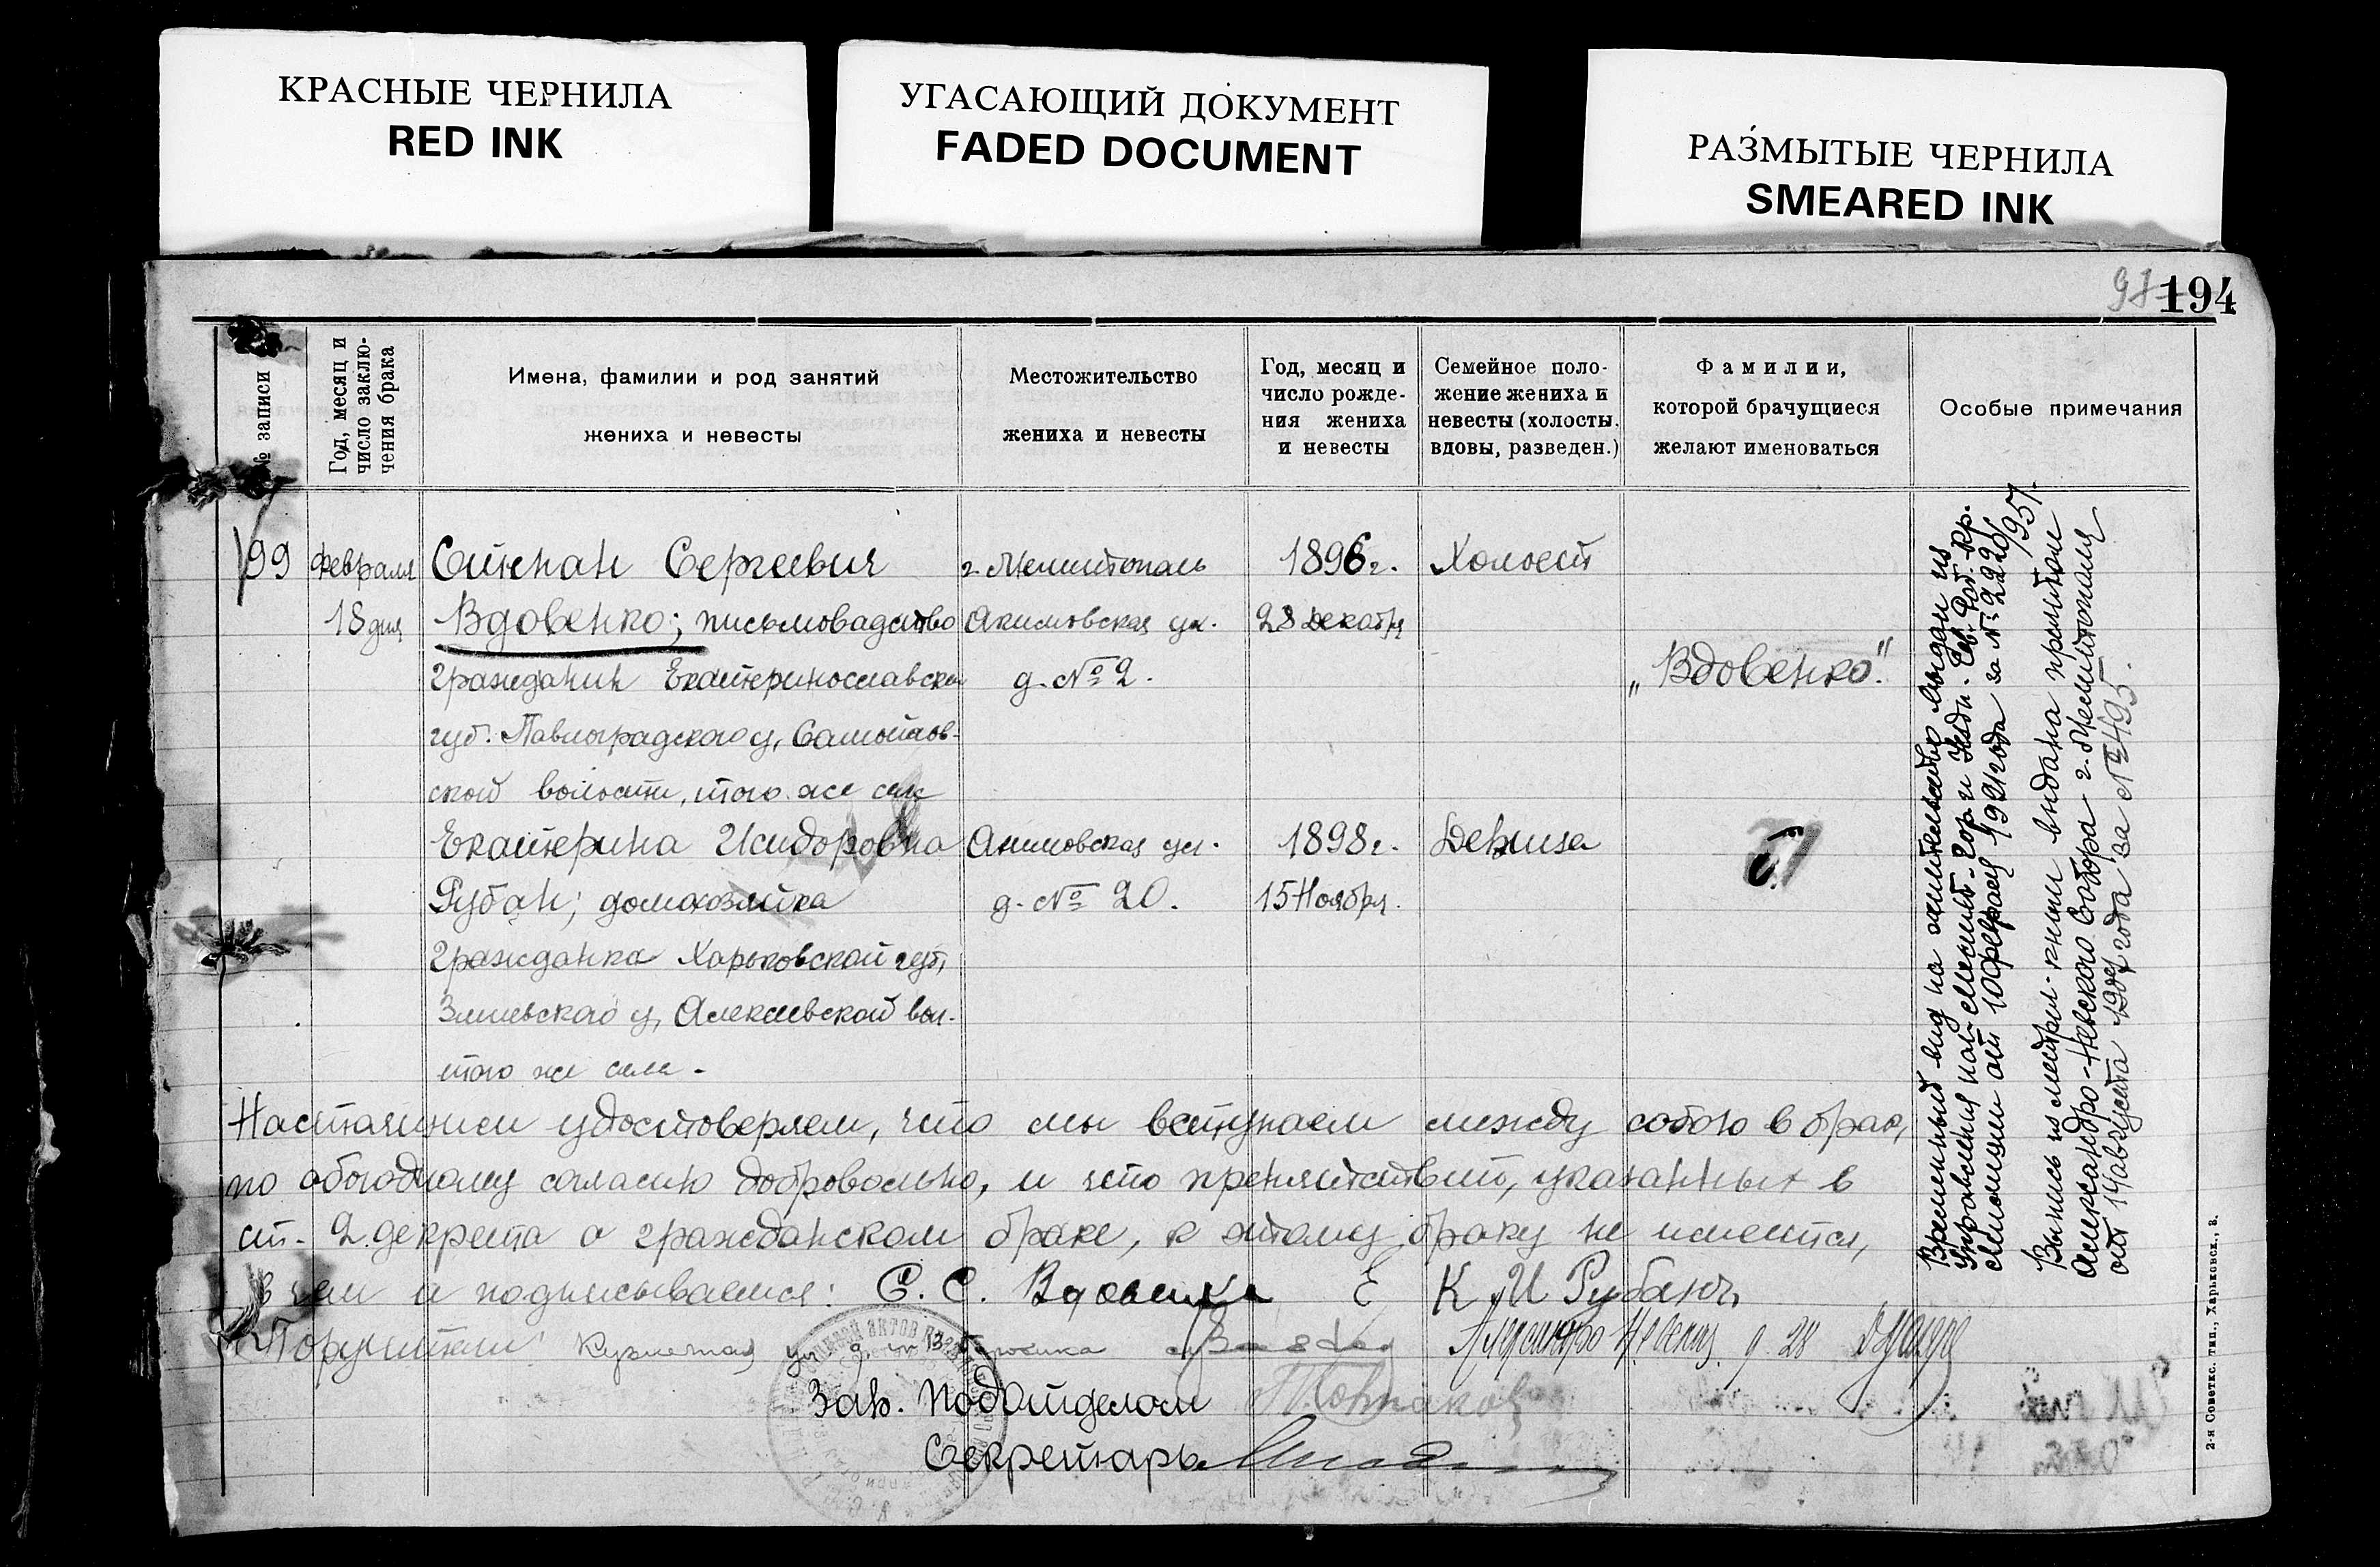 КРАСНЫЕ ЧЕРНИЛА
RED INK
УГАСАЮЩИЙ ДОКУМЕНТ
FADED DOCUMENT
РАЗМЫТЫЕ ЧЕРНИЛА
SMEARED INK
194
№ записи
Год, месяц и
число заклю-
чения брака
Имена, фамилии и род занятий
жениха и невесты
Местожительство
жениха и невесты
Год, месяц и
число рожде-
ния жениха
и невесты
Семейное поло-
жение жениха и
невесты (холосты,
вдовы, разведен.)
Фамилии,
которой брачущиеся
желают именоваться
Особые примечания
99
Февраля
18 дня
Степан Сергеевич
Вдовенко; письмовадство
гражданин Екатеринославской
губ. Павлоградского у, Самойлов-
ской волости, того же села
г. Мелитополь
Акимовская ул.
д. № 2.
1896 г.
28 декабря
Холост
„Вдовенко“
Екатерина Исидоровна
Рубан; домохозяйка
гражданка Харьковской губ,
Змиевского у, Алексеевской вол.
того же села.
Акимовская ул.
д. № 20.
1898 г.
15 Ноября.
Девица
Временный вид на жительство выдан из
Управления Мелит. Гор и Уезд. Сов. Раб. Кр.
Милиции от 10 февраля 1921 года за № 2226/1957.
Выпись из метрич. книги выдана причтом
Александро-Невского Собора г. Мелитополя
от 14 августа года за № 495.
Настоящим удостоверяем, что мы вступаем между собою в брак,
по обоюдному согласию добровольно, и что препятствий, указанных в
ст. 2 декрета о гражданском браке, к этому браку не имеется,
в чем и подписываемся: С. С. Вдовенко Е К И Рубанъ
Поручители: Кузнечная ул д. № 13 Александро Невская д. 28
Зав. Подотделом
Секретарь
2-я Советск. тип., Харьковск., 3.